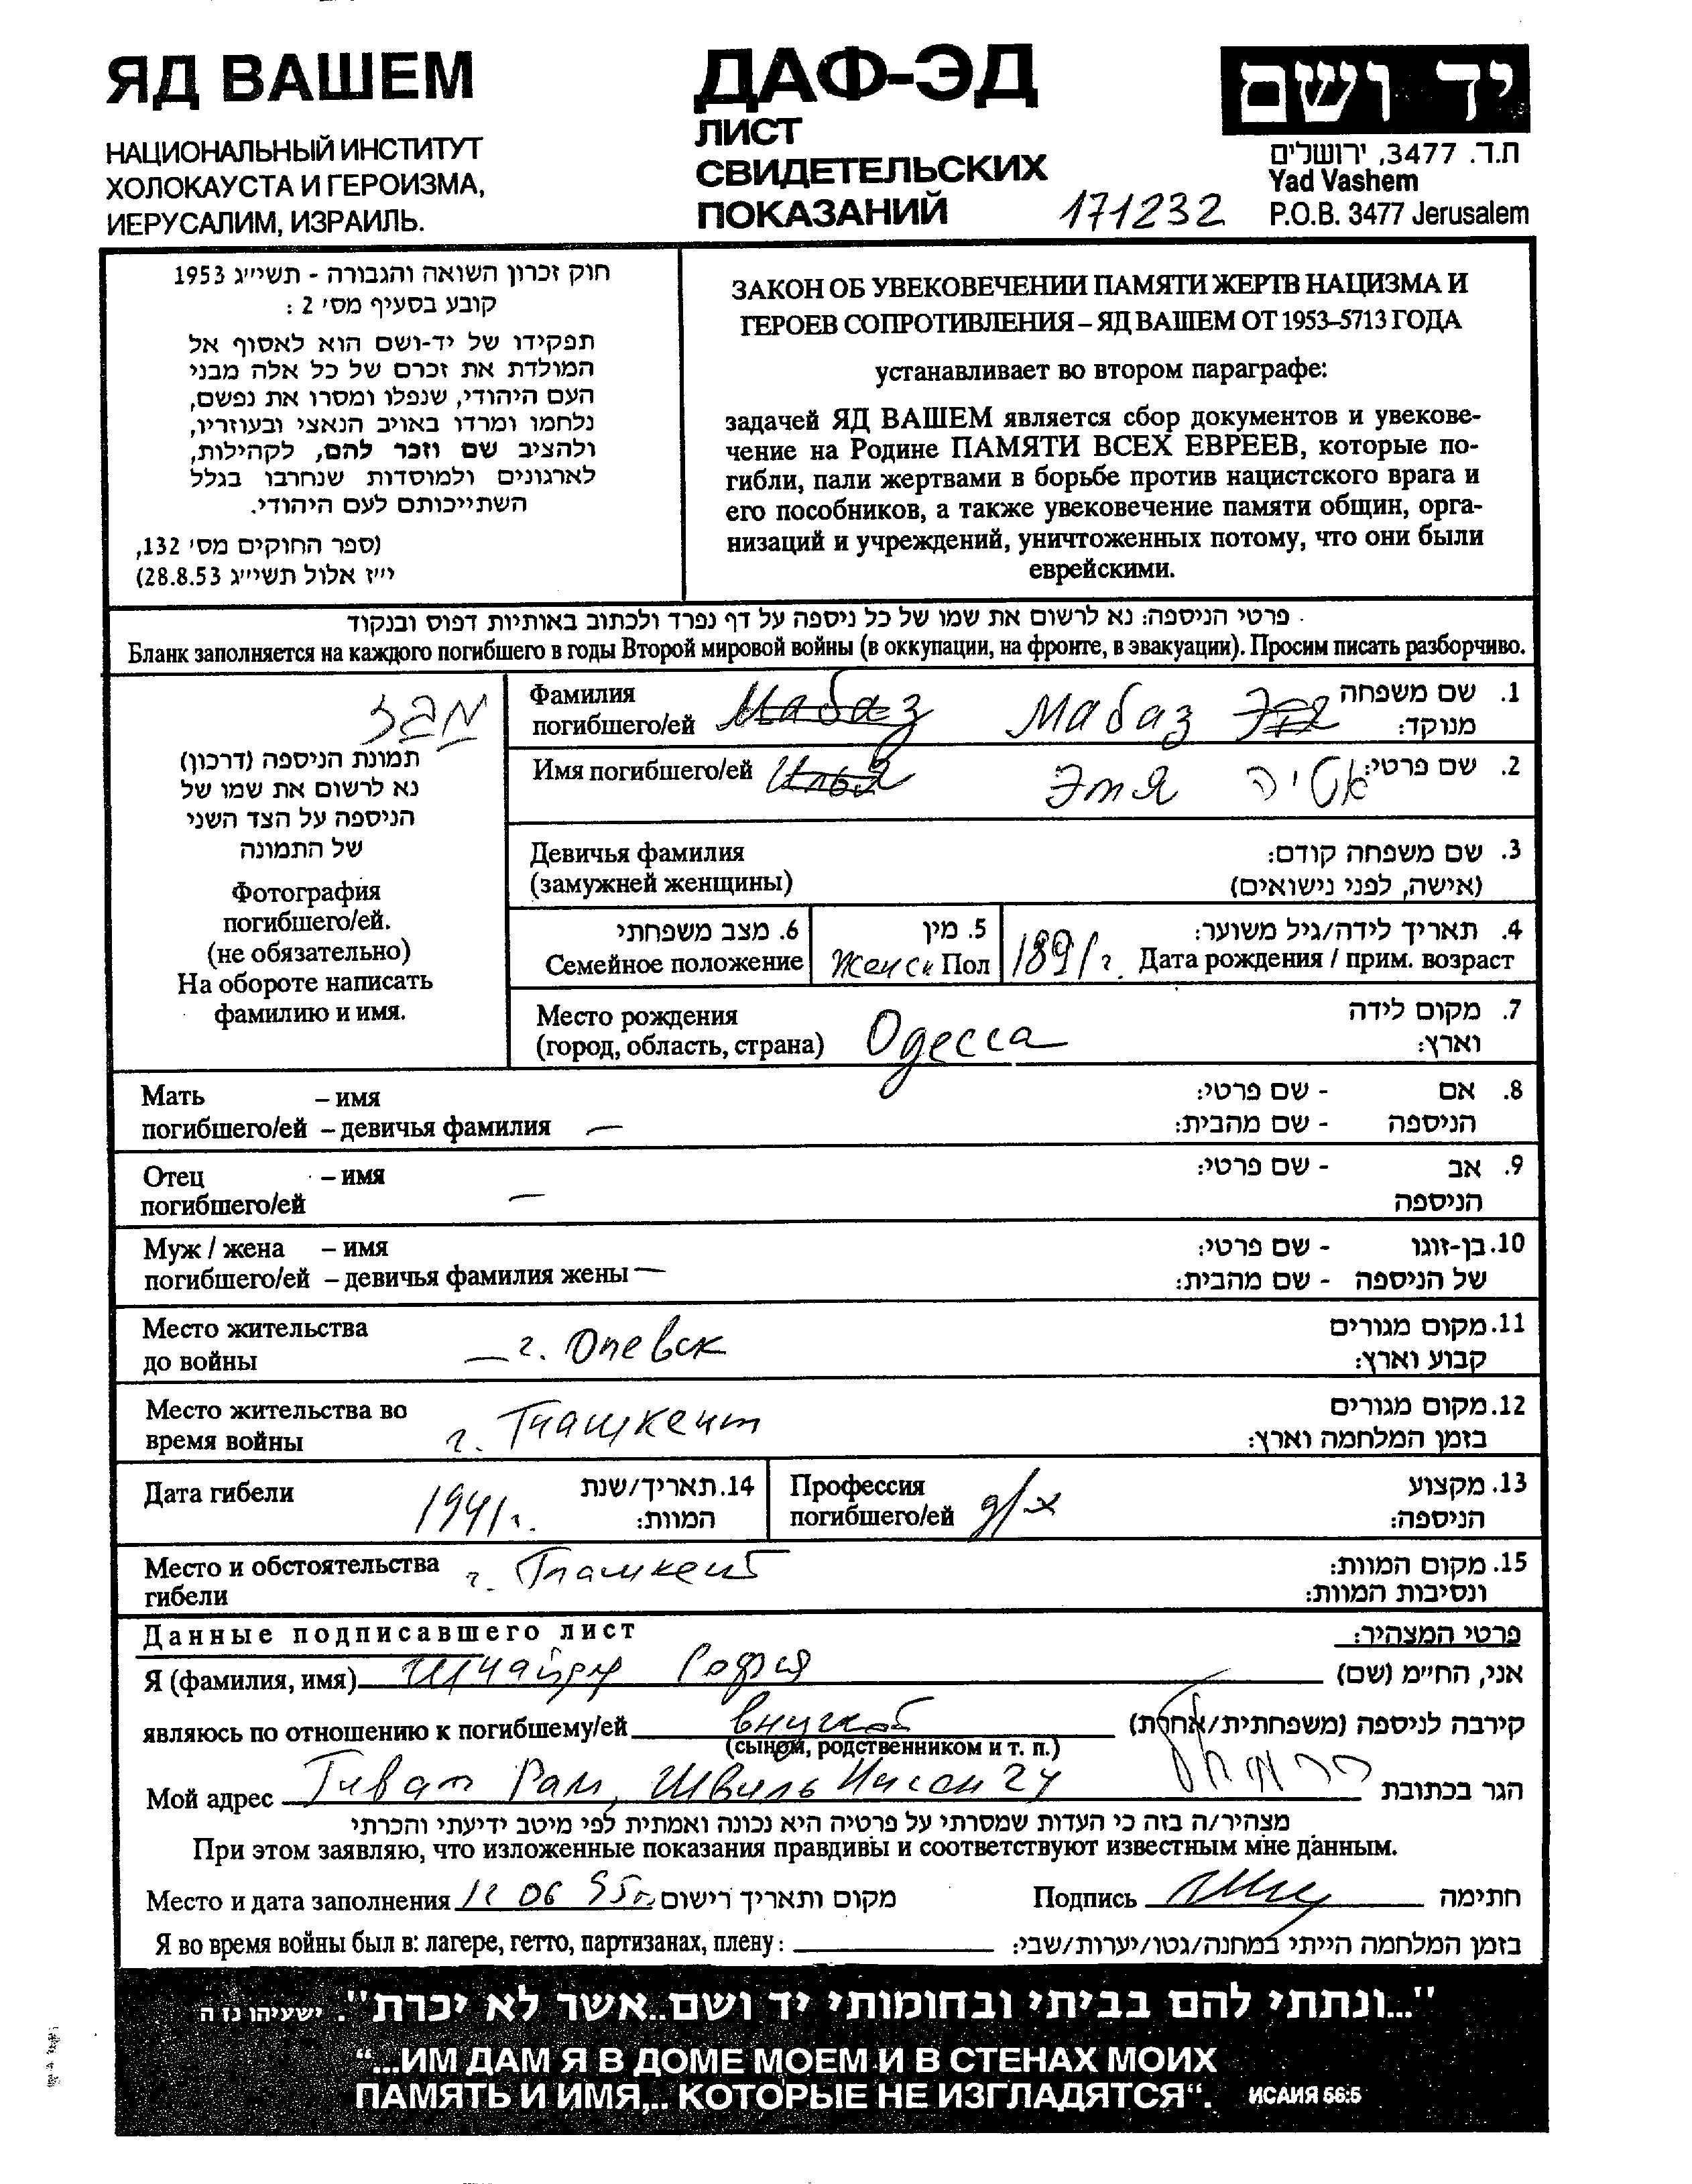 ЯД ВАШЕМ
НАЦИОНАЛЬНЫЙ ИНСТИТУТ
ХОЛОКАУСТА И ГЕРОИЗМА,
ИЕРУСАЛИМ, ИЗРАИЛЬ.
ДАФ-ЭД
ЛИСТ
СВИДЕТЕЛЬСКИХ
ПОКАЗАНИЙ
171232
יד ושם
ת.ד. 3477, ירושלים
Yad Vashem
P.O.B. 3477 Jerusalem
חוק זכרון השואה והגבורה - תשי״ג 1953
קובע בסעיף מס׳ 2 :
תפקידו של יד-ושם הוא לאסוף אל
המולדת את זכרם של כל אלה מבני
העם היהודי, שנפלו ומסרו את נפשם,
נלחמו ומרדו באויב הנאצי ובעוזריו,
ולהציב שם וזכר להם, לקהילות,
לארגונים ולמוסדות שנחרבו בגלל
השתייכותם לעם היהודי.
(ספר החוקים מס׳ 132,
י״ז אלול תשי״ג 28.8.53)
ЗАКОН ОБ УВЕКОВЕЧЕНИИ ПАМЯТИ ЖЕРТВ НАЦИЗМА И
ГЕРОЕВ СОПРОТИВЛЕНИЯ – ЯД ВАШЕМ ОТ 1953–5713 ГОДА
устанавливает во втором параграфе:
задачей ЯД ВАШЕМ является сбор документов и увекове-
чение на Родине ПАМЯТИ ВСЕХ ЕВРЕЕВ, которые по-
гибли, пали жертвами в борьбе против нацистского врага и
его пособников, а также увековечение памяти общин, орга-
низаций и учреждений, уничтоженных потому, что они были
еврейскими.
פרטי הניספה: נא לרשום את שמו של כל ניספה על דף נפרד ולכתוב באותיות דפוס ובנקוד
Бланк заполняется на каждого погибшего в годы Второй мировой войны (в оккупации, на фронте, в эвакуации). Просим писать разборчиво.
מבז
תמונת הניספה (דרכון)
נא לרשום את שמו של
הניספה על הצד השני
של התמונה
Фотография
погибшего/ей.
(не обязательно)
На обороте написать
фамилию и имя.
Фамилия
погибшего/ей Мабаз Мабаз
1. שם משפחה
מנוקד:
Имя погибшего/ей Эття אטיה
2. שם פרטי:
Девичья фамилия
(замужней женщины)
3. שם משפחה קודם:
(אישה, לפני נישואים)
6. מצב משפחתי
Семейное положение
5. מין
Женск Пол
4. תאריך לידה/גיל משוער:
1891 г. Дата рождения / прим. возраст
Место рождения
(город, область, страна) Одесса
7. מקום לידה
וארץ:
Мать – имя
погибшего/ей – девичья фамилия —
8. אם - שם פרטי:
הניספה - שם מהבית:
Отец – имя
погибшего/ей —
9. אב - שם פרטי:
הניספה
Муж / жена – имя
погибшего/ей – девичья фамилия жены —
10. בן-זוגו - שם פרטי:
של הניספה - שם מהבית:
Место жительства
до войны — г. Олевск
11. מקום מגורים
קבוע וארץ:
Место жительства во
время войны г. Ташкент
12. מקום מגורים
בזמן המלחמה וארץ:
Дата гибели 1941 г.
14. תאריך/שנת
המוות:
Профессия
погибшего/ей д/х
13. מקצוע
הניספה:
Место и обстоятельства
гибели г. Ташкент
15. מקום המוות:
ונסיבות המוות:
Данные подписавшего лист
פרטי המצהיר:
Я (фамилия, имя) Шнайдер София אני, הח״מ (שם)
являюсь по отношению к погибшему/ей внучкой קירבה לניספה (משפחתית/אחרת)
(сыном, родственником и т. п.)
Мой адрес Гиват Рам, Швиль Нисан 24 הגר בכתובת
מצהיר/ה בזה כי העדות שמסרתי על פרטיה היא נכונה ואמתית לפי מיטב ידיעתי והכרתי
При этом заявляю, что изложенные показания правдивы и соответствуют известным мне данным.
Место и дата заполнения 06 95г. מקום ותאריך רישום Подпись חתימה
Я во время войны был в: лагере, гетто, партизанах, плену: בזמן המלחמה הייתי במחנה/גטו/יערות/שבי:
"...ונתתי להם בביתי ובחומותי יד ושם..אשר לא יכרת". ישעיהו נז ה
“...ИМ ДАМ Я В ДОМЕ МОЕМ И В СТЕНАХ МОИХ
ПАМЯТЬ И ИМЯ,.. КОТОРЫЕ НЕ ИЗГЛАДЯТСЯ“. ИСАИЯ 56:5